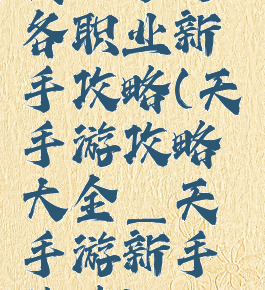 各职业新
手攻略(天
手游攻略
大全_天
手游新手